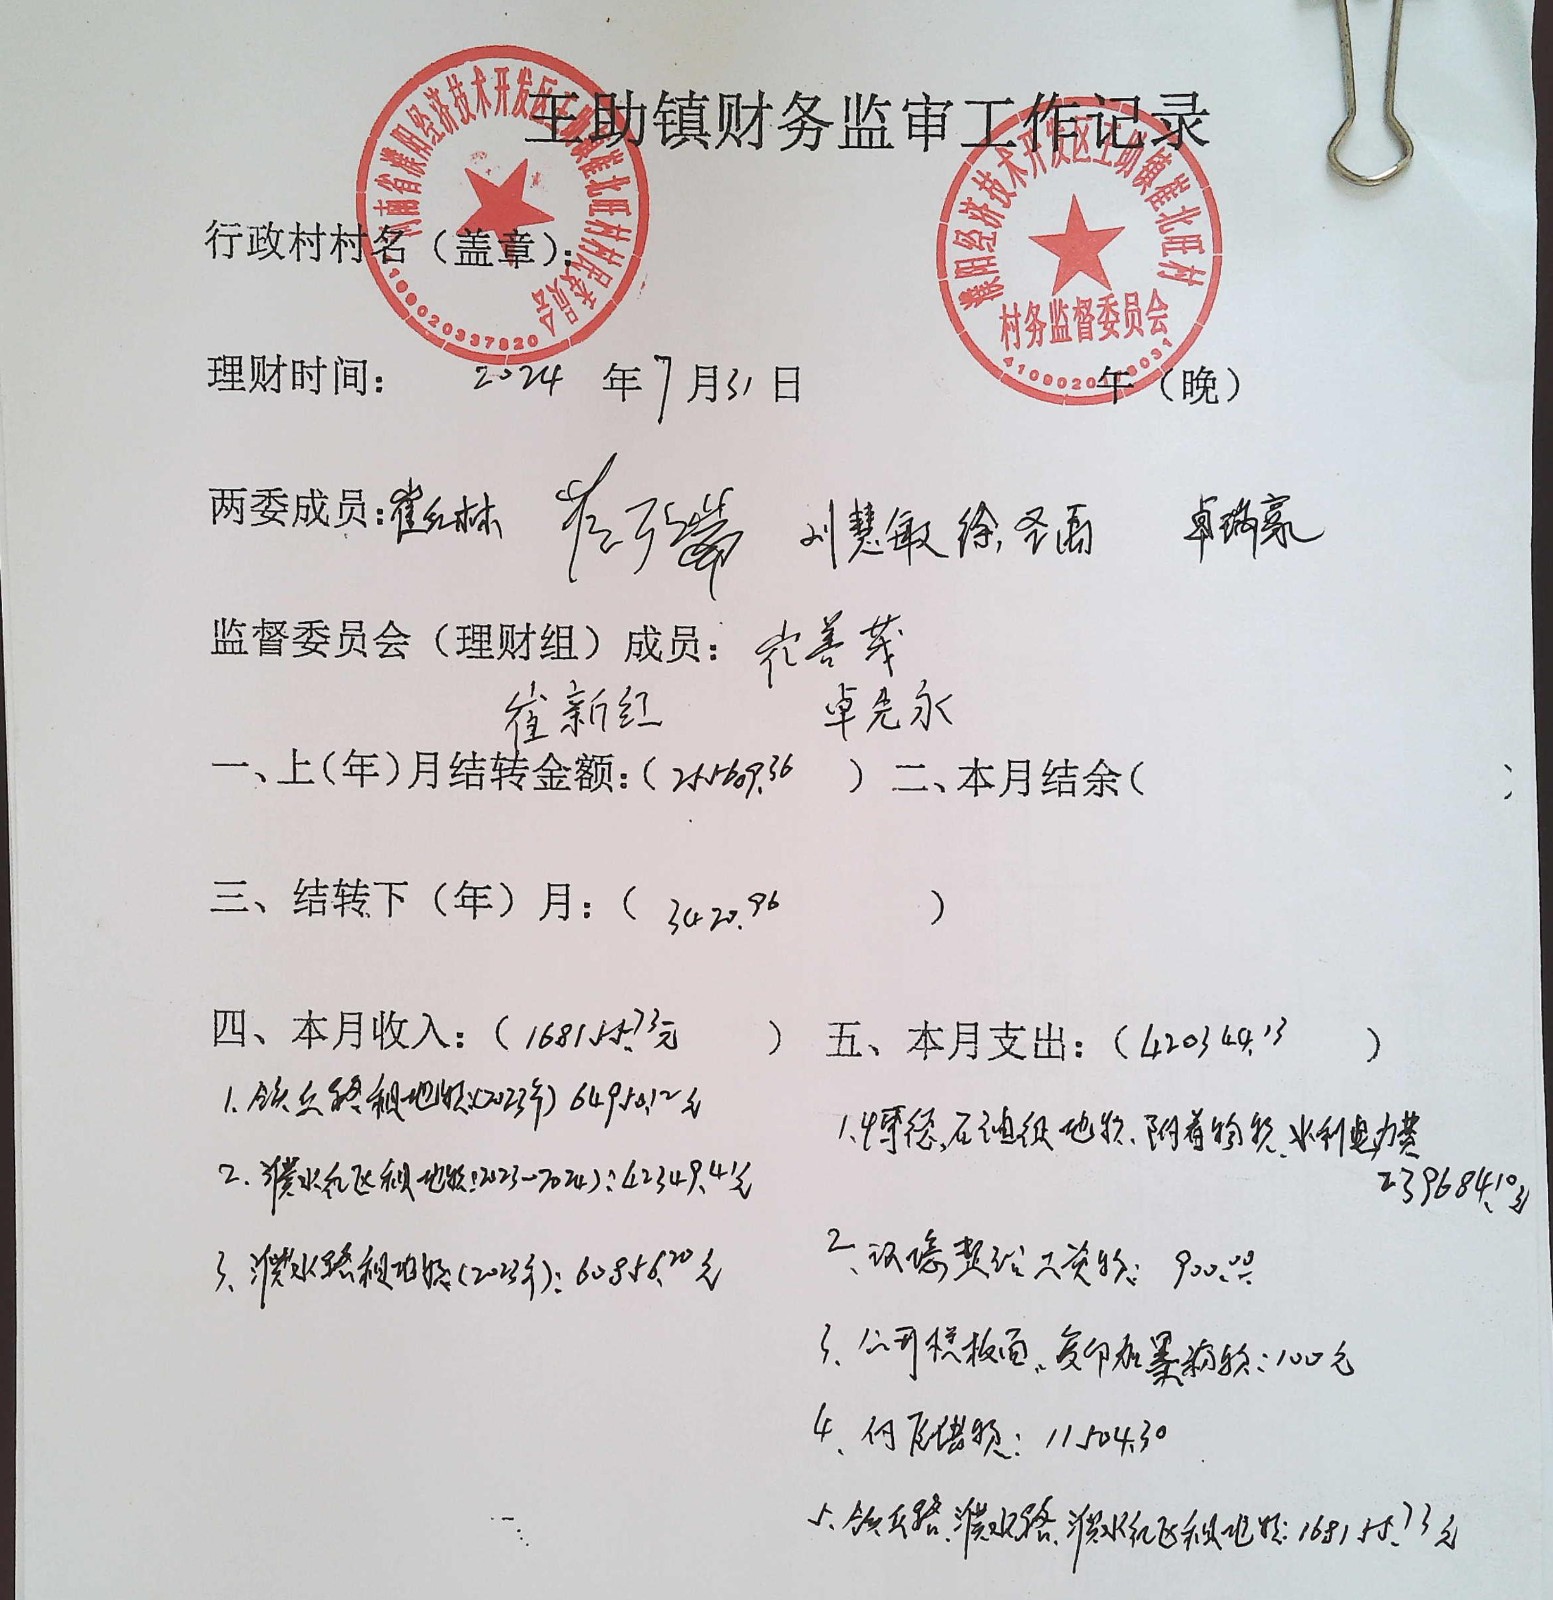 王助镇财务监审工作记录
河南省濮阳经济技术开发区王助镇崔北旺村村民委员会
濮阳经济技术开发区王助镇崔北旺村
村务监督委员会
行政村村名（盖章）：
理财时间： 2024 年 7 月 31 日 午（晚）
两委成员：崔红林 刘慧敏 徐圣雨 卓瑞豪
监督委员会（理财组）成员：崔善茂
崔新红 卓先永
一、上（年）月结转金额：（255609.36 ）二、本月结余（ ）
三、结转下（年）月：（ 3420.96 ）
四、本月收入：（168155.73元 ） 五、本月支出：（420344.13 ）
1、铁丘路租地款（2023年）64950.12元
1、 石油征地款、附着物款、水利电力费
239684.10元
2、濮水 区租地款（2023-2024）：42349.41元
2、 整治工资款： 900.00
3、濮水路租地款（2023年）：60856.20元
3、公开栏板面、复印 墨 款：100元
4、付 借款：11504.30
5、铁丘路、濮水路、濮水 区租地款：168155.73元